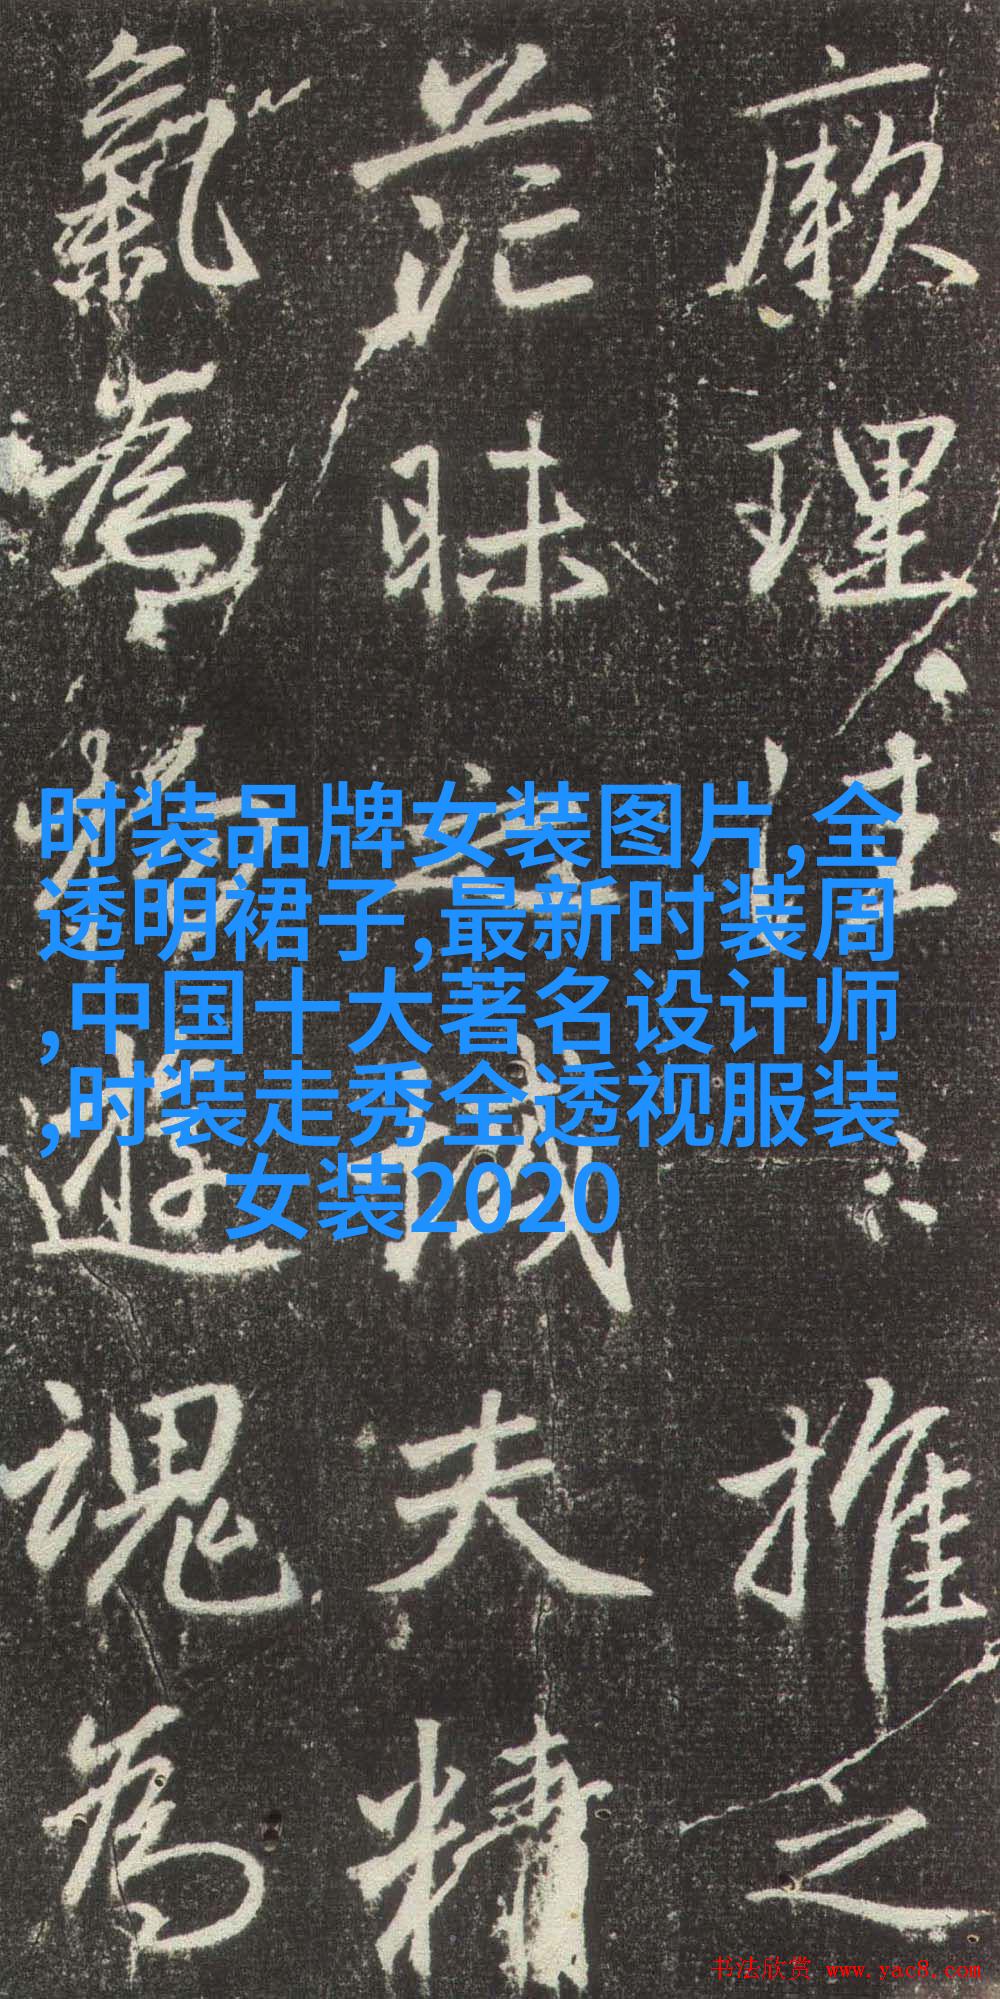 厥理推之
茫昧之夫精
氣為遊魂為
时装品牌女装图片,全
透明裙子,最新时装周
,中国十大著名设计师
,时装走秀全透视服装
女装2020
书法欣赏 www.yac8.com